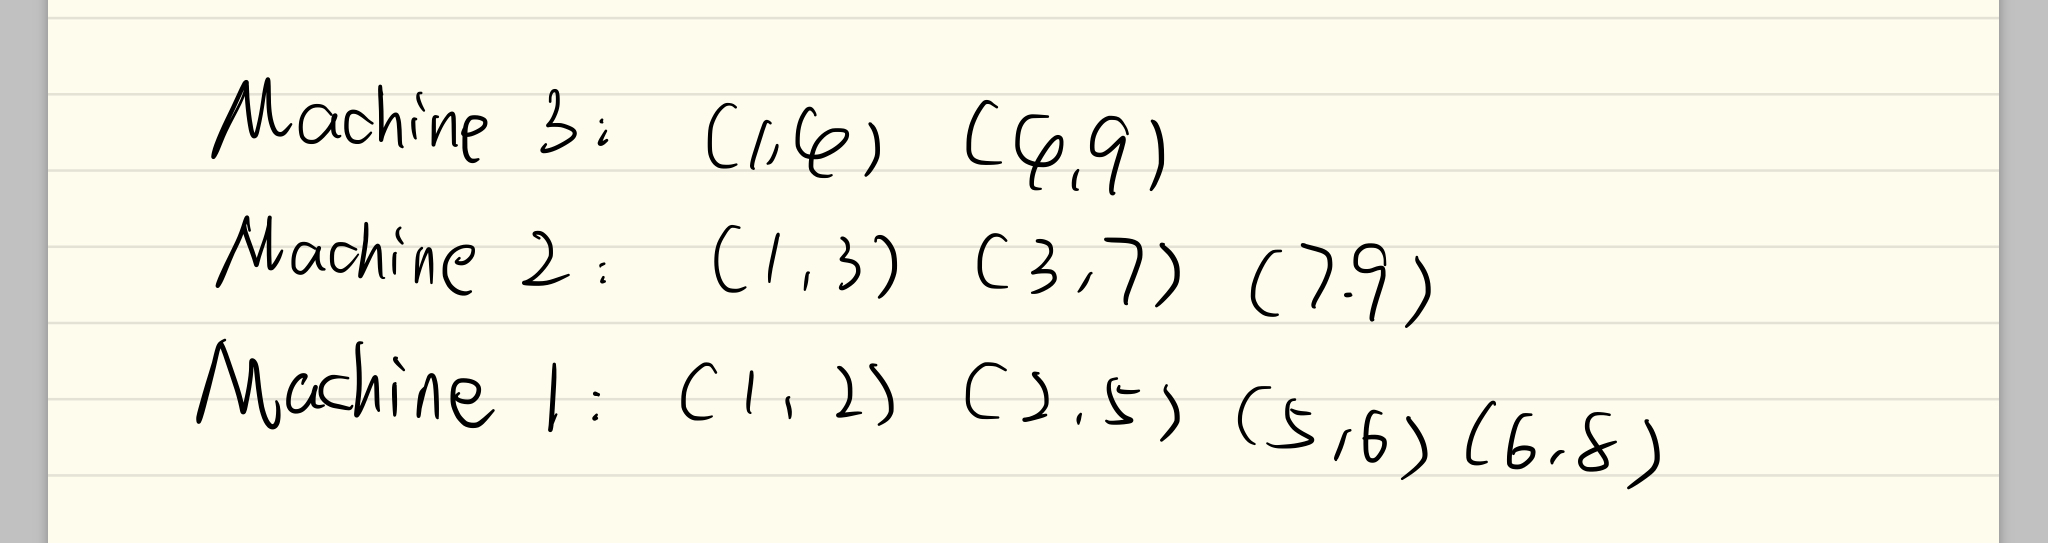 Machine 3: (1,6) (6,9)
Machine 2: (1,3) (3,7) (7.9)
Machine 1: (1,2) (2.5) (5,6) (6.8)